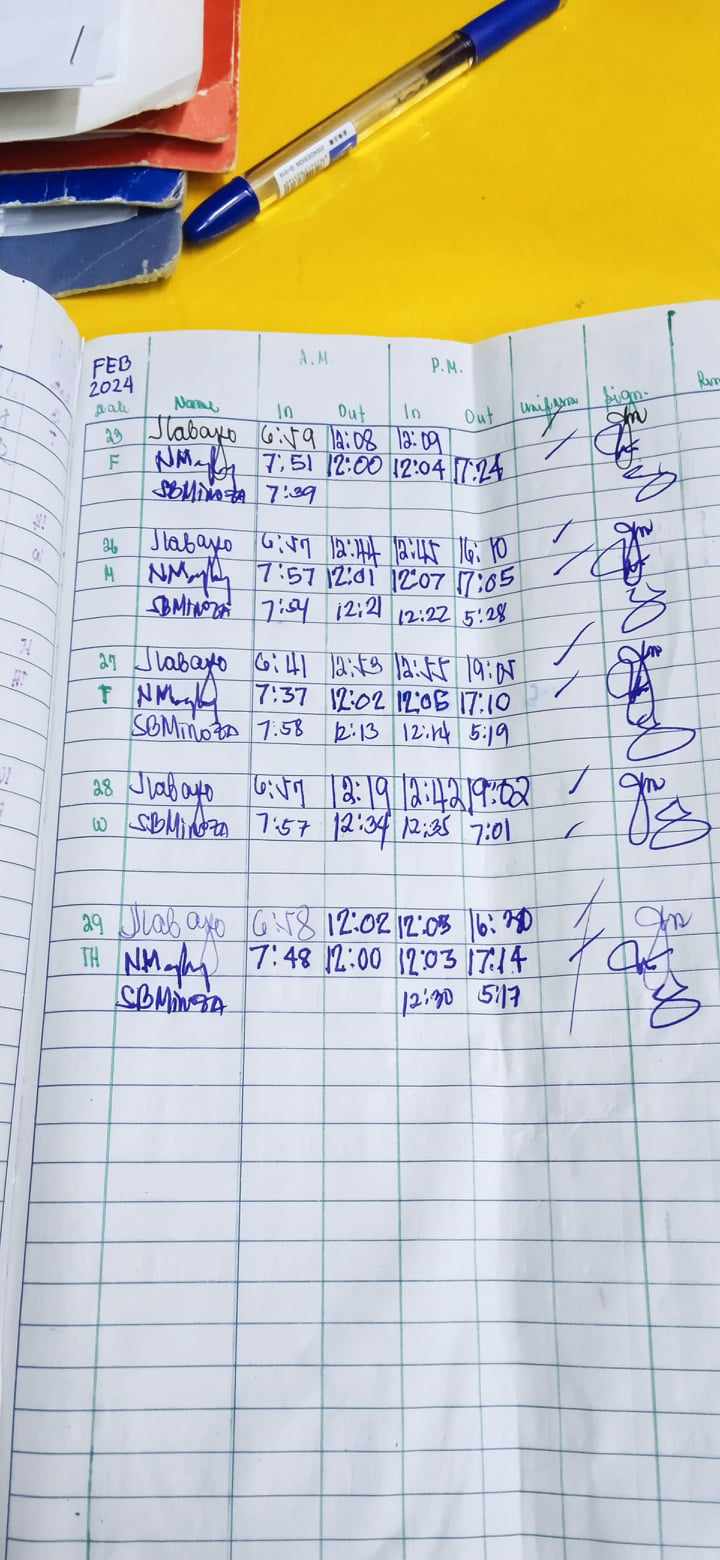 FEB 2024
A.M P.M.
Date Name In Out In Out Uniform Sign.
23 Jlabayo 6:59 12:08 12:09
F 7:51 12:00 12:04 17:24
SBMinoza 7:39
26 Jlabayo 6:57 12:44 12:45 16:10
M 7:57 12:01 12:07 17:05
SBMinoza 7:54 12:21 12:22 5:28
27 Jlabayo 6:41 12:53 12:55 19:05
T 7:37 12:02 12:05 17:10
SBMinoza 7:58 12:13 12:14 5:19
28 Jlabayo 6:57 12:19 12:42 19:02
W SBMinoza 7:57 12:34 12:35 7:01
29 Jlabayo 6:58 12:02 12:03
TH 7:48 12:00 12:03 17:14
SBMinoza 12:30 5:17